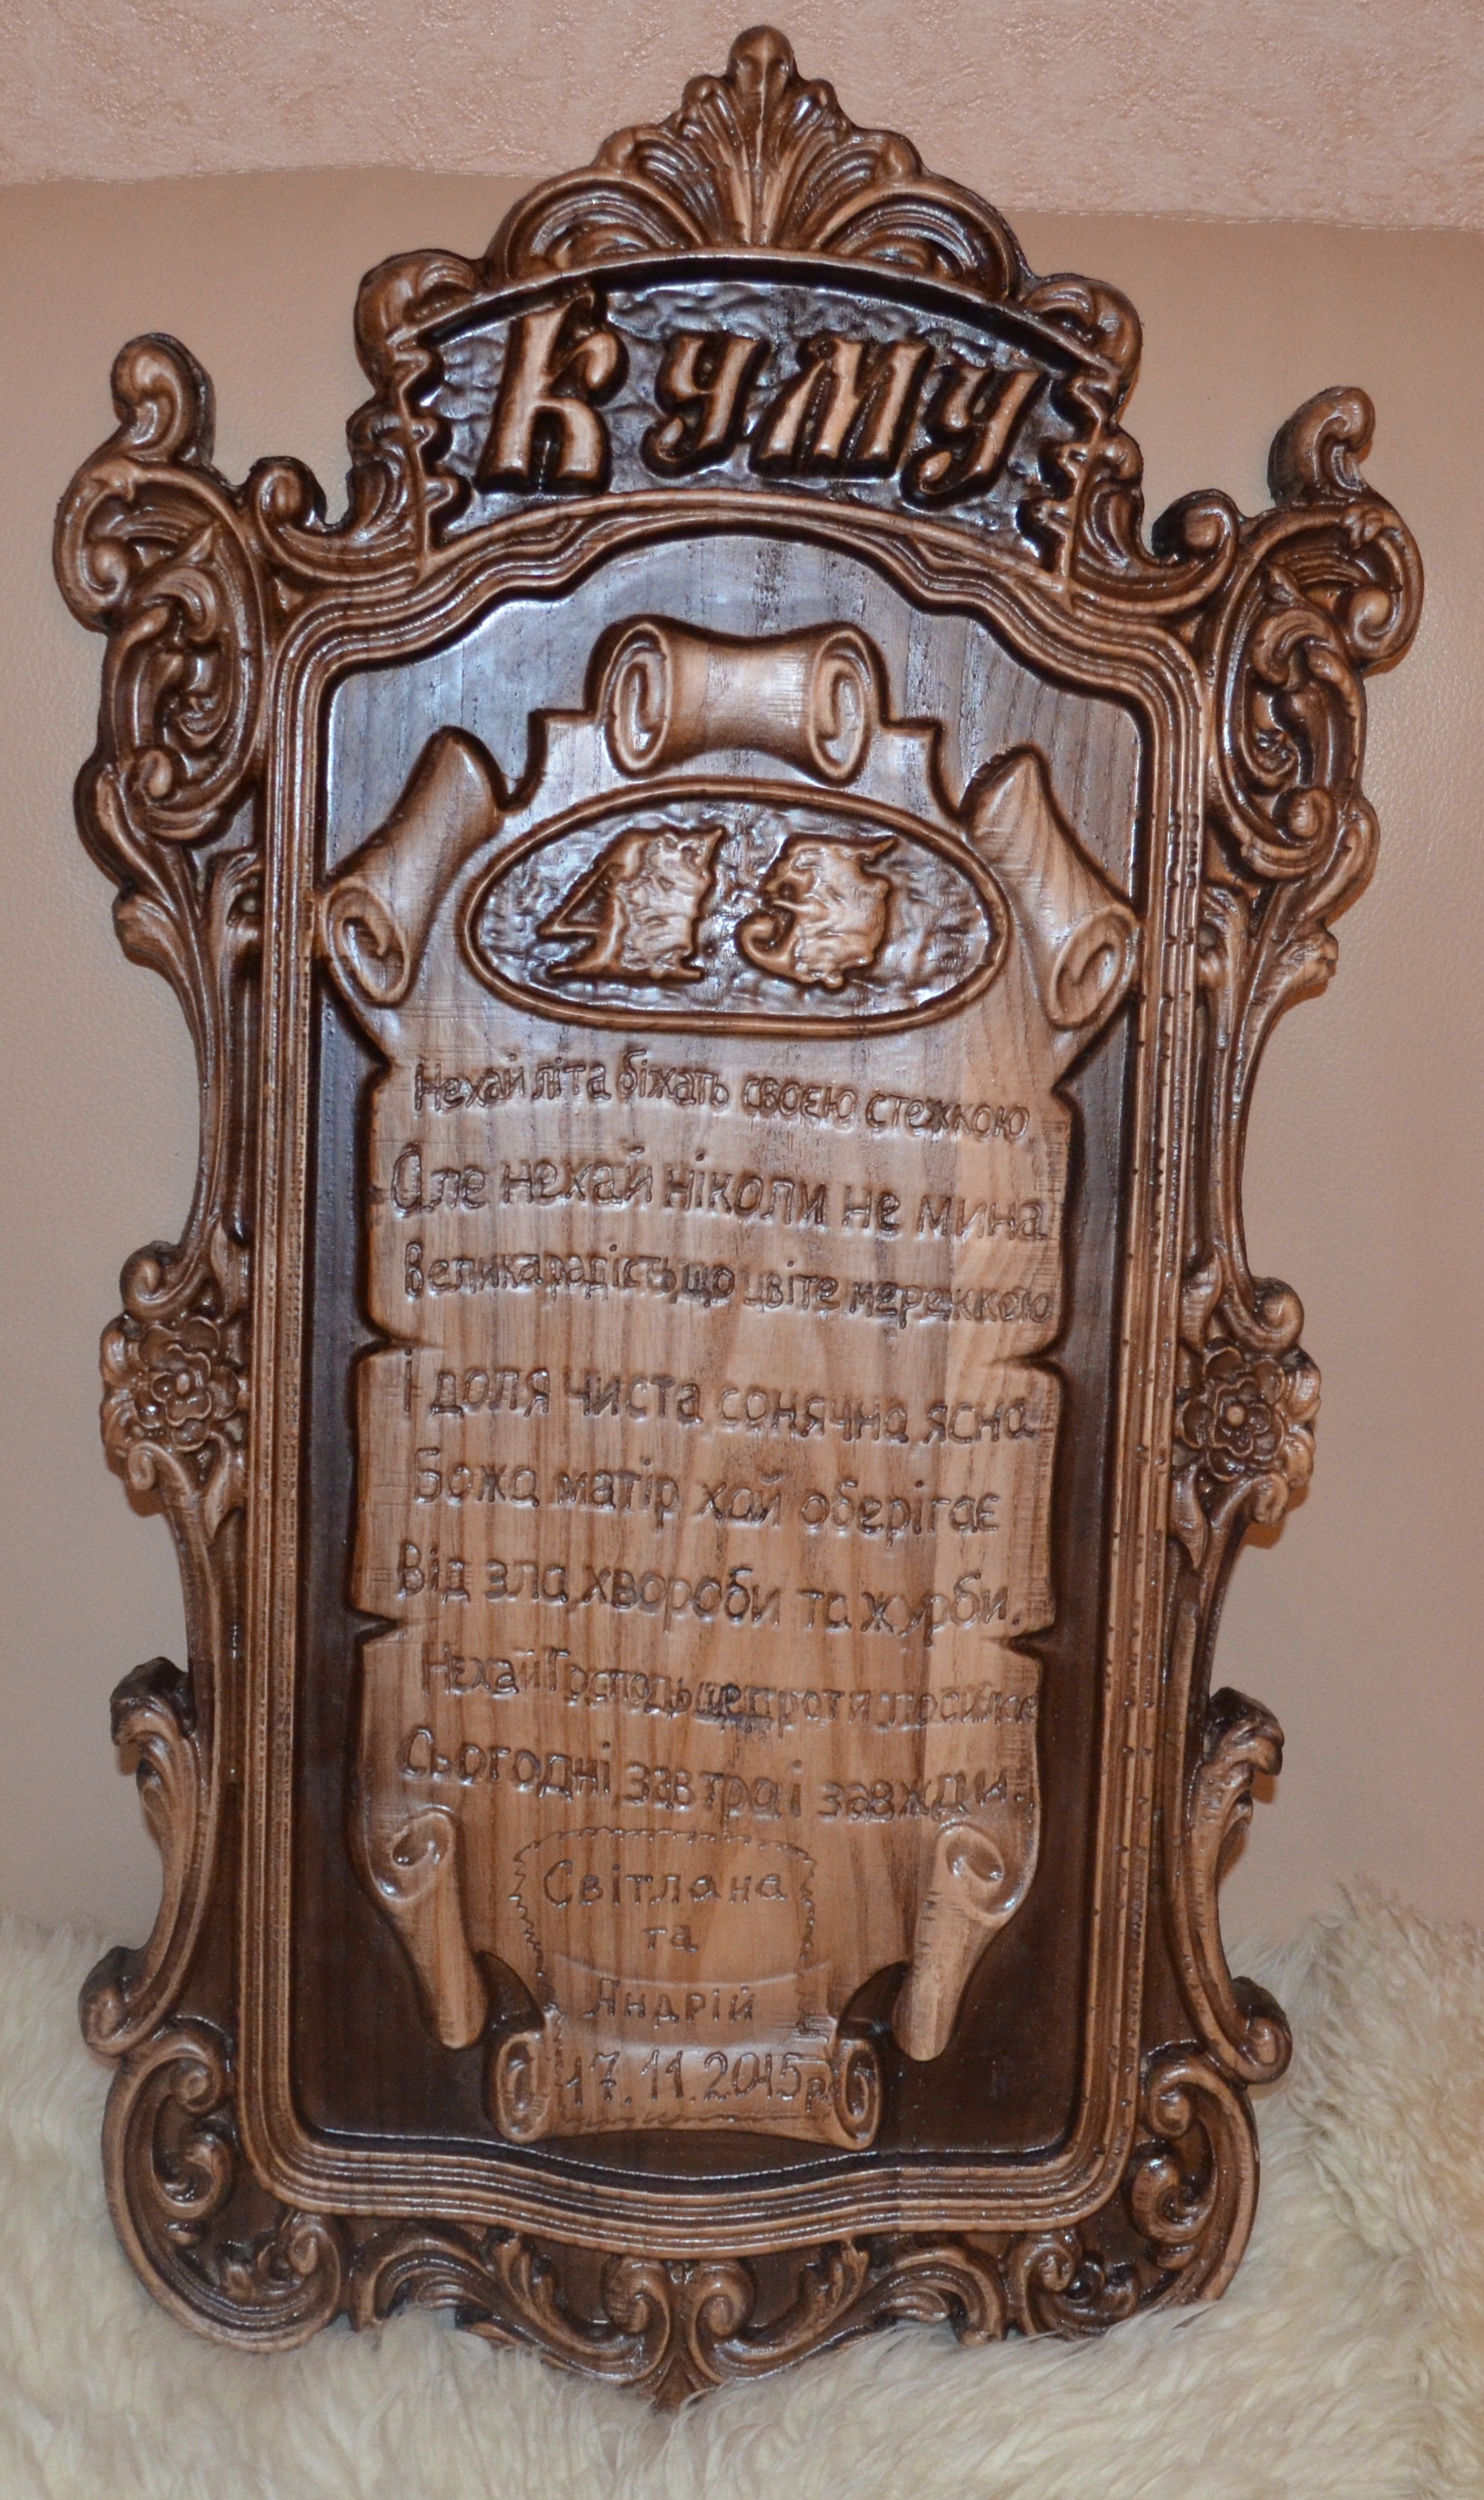 Куму
45
Нехай літа біжать своєю стежкою
Але нехай ніколи не мина
Велика радість, що цвіте мережкою
І доля чиста сонячна ясна
Божа матір хай оберігає
Від зла, хвороби та журби.
Нехай Господь щедроти посилає
Сьогодні, завтра і завжди.
Світлана
та
Андрій
17.11.2015р